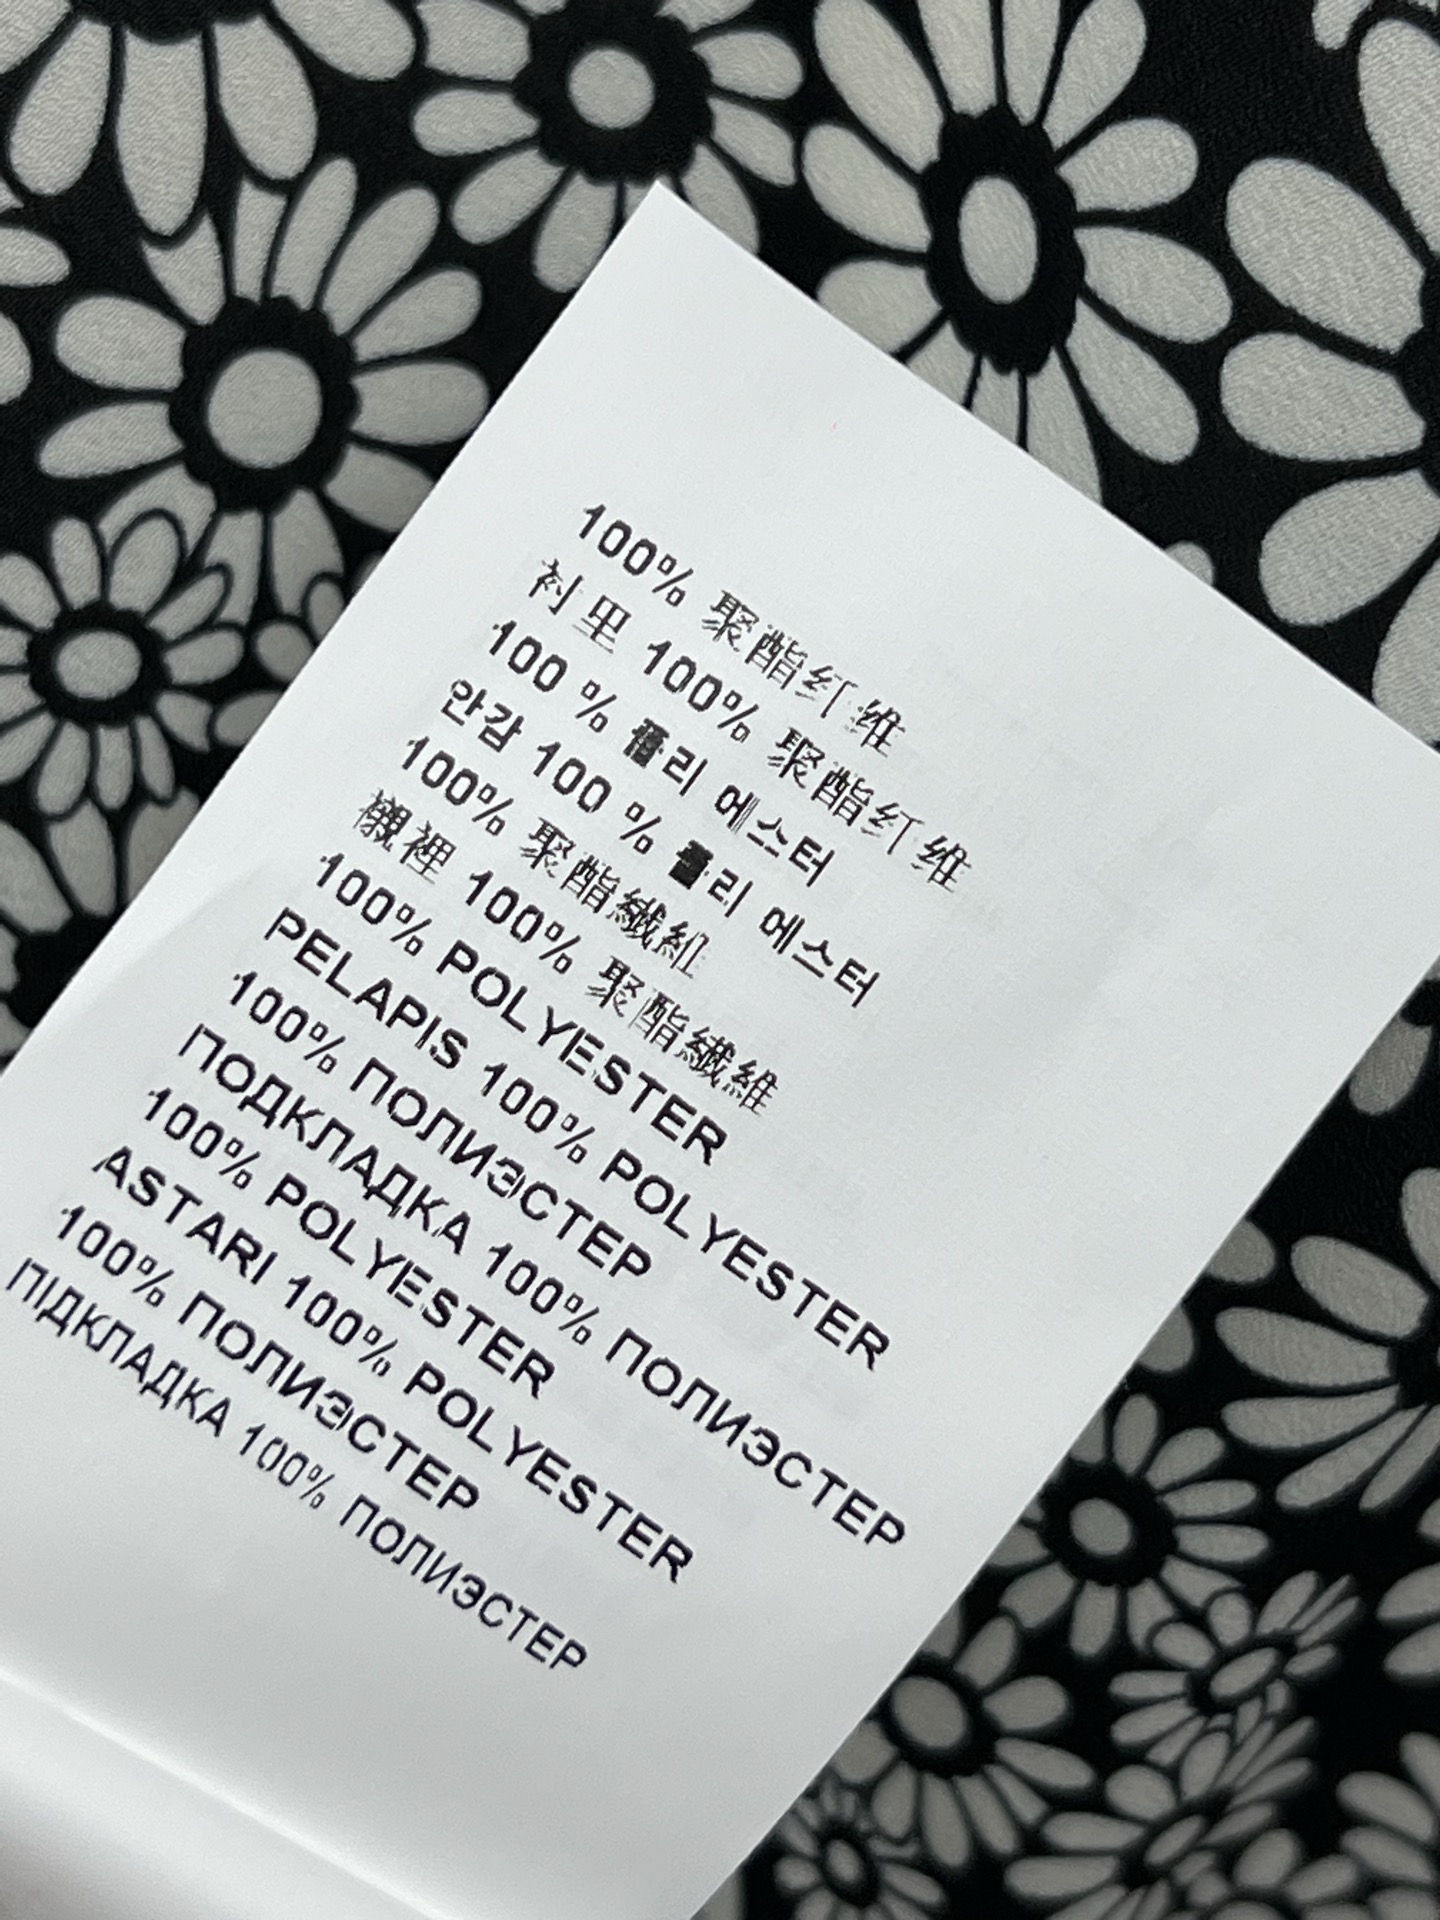 100% 聚酯纤维
衬里 100% 聚酯纤维
100 % 폴리 에스터
안감 100 % 폴리 에스터
100% 聚酯纖維
襯裡 100% 聚酯纖維
100% POLYESTER
PELAPIS 100% POLYESTER
100% ПОЛИЭСТЕР
ПОДКЛАДКА 100% ПОЛИЭСТЕР
100% POLYESTER
ASTARI 100% POLYESTER
100% ПОЛИЭСТЕР
ПІДКЛАДКА 100% ПОЛИЭСТЕР